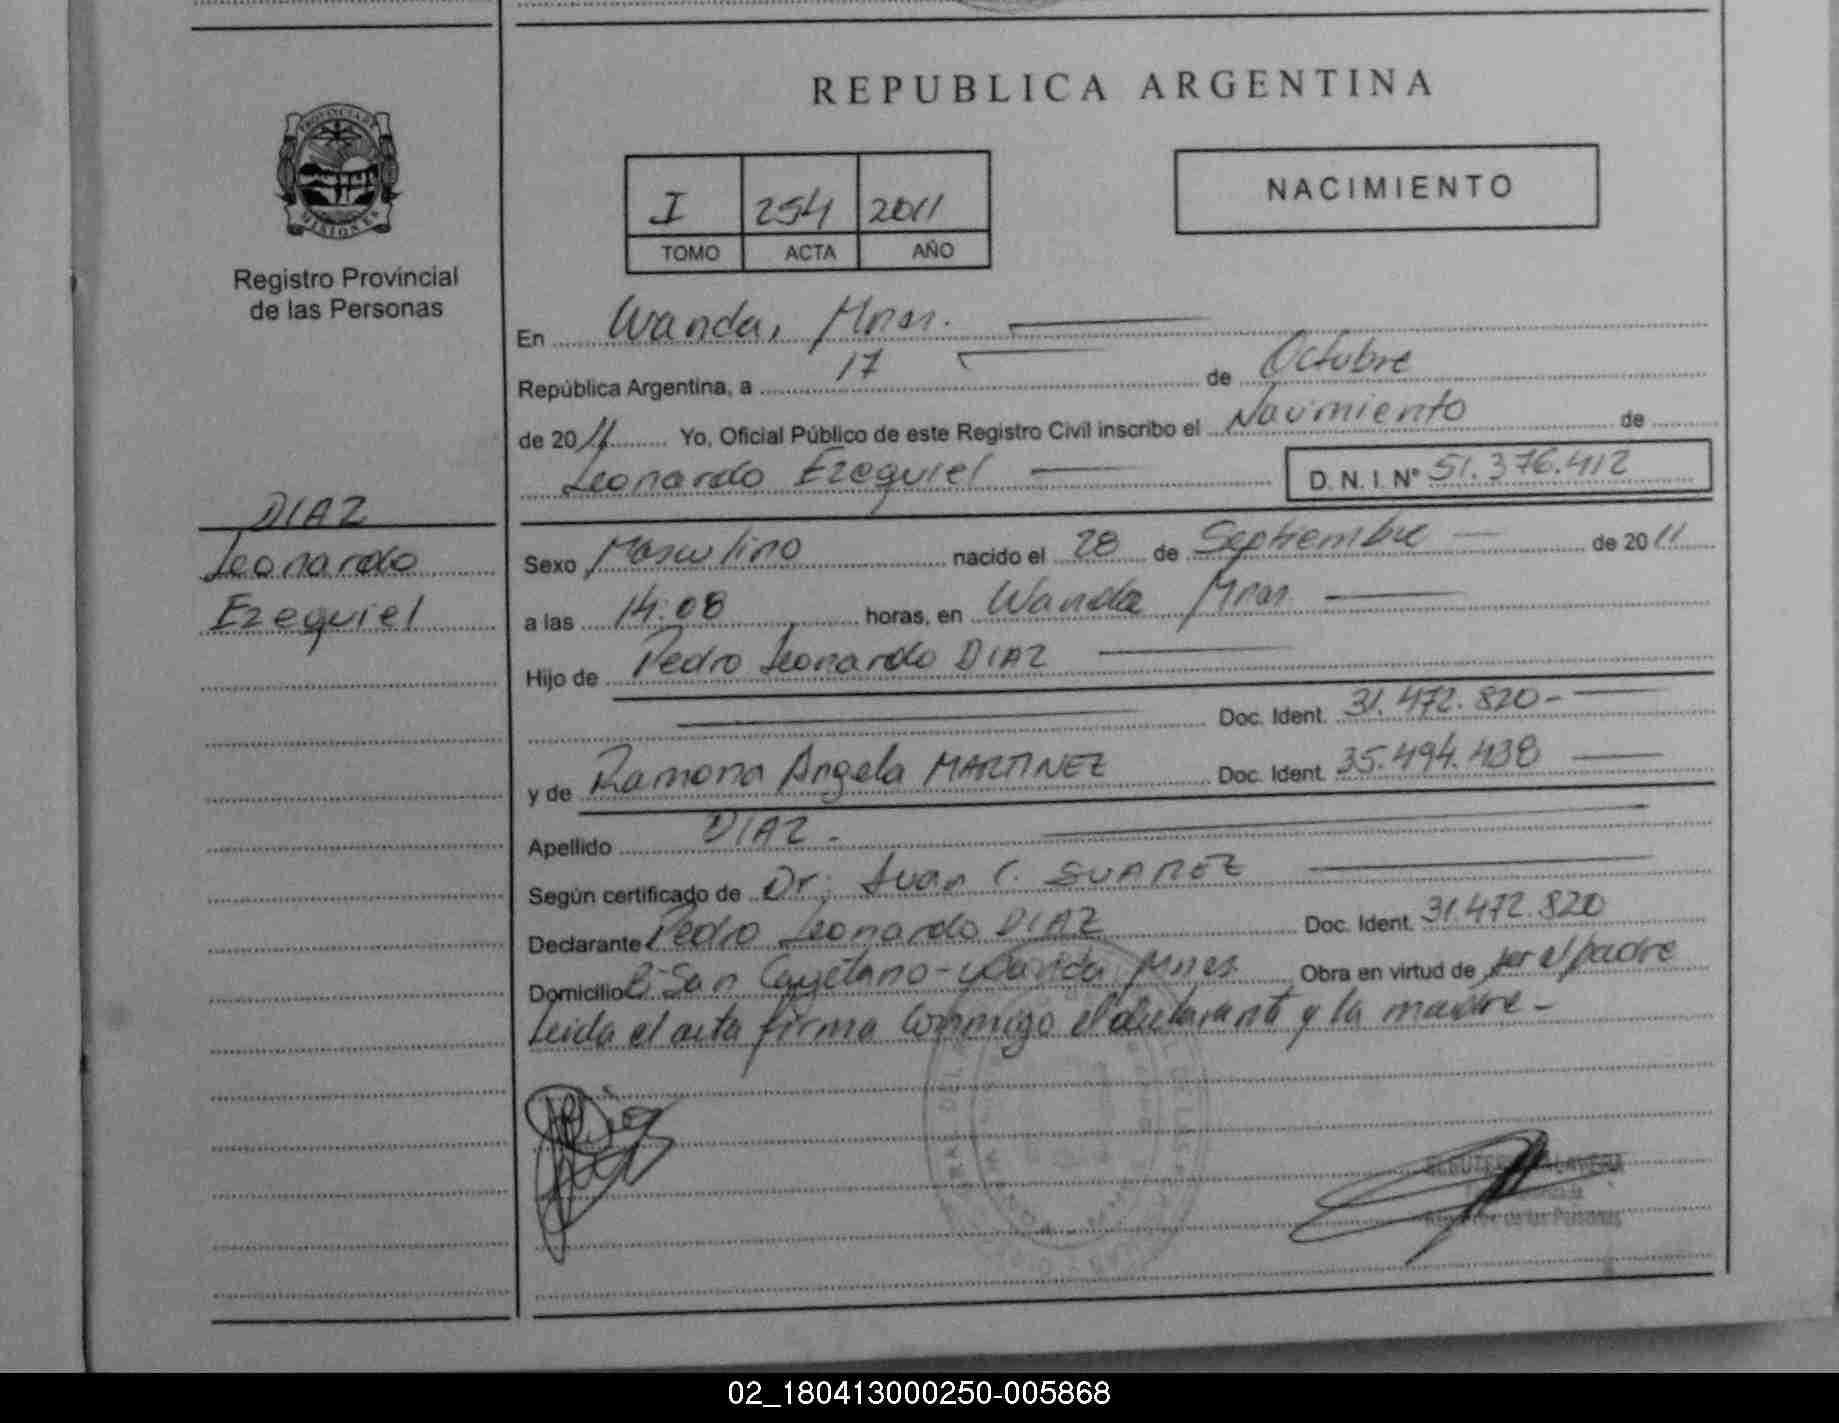 REPUBLICA ARGENTINA
PROVINCIA DE
MISIONES
Registro Provincial
de las Personas
I 254 2011
TOMO ACTA AÑO
NACIMIENTO
En Wanda, Mnes.
República Argentina, a 17 de Octubre
de 2011 Yo, Oficial Público de este Registro Civil inscribo el Nacimiento de
Leonardo Ezequiel D. N. I. Nº 51.376.412
DIAZ
Leonardo
Ezequiel
Sexo Masculino nacido el 28 de Septiembre de 2011
a las 14:08 horas, en Wanda Mnes
Hijo de Pedro Leonardo DIAZ
Doc. Ident. 31.472.820-
y de Ramona Angela MARTINEZ Doc. Ident. 35.494.438
Apellido DIAZ-
Según certificado de Dr. Juan C. SUAREZ
Declarante Pedro Leonardo DIAZ Doc. Ident. 31.472.820
Domicilio Bº San Cayetano-Wanda Mnes Obra en virtud de ser el padre
Leida el acta firma conmigo el declarante y la madre-
de las Personas
02_180413000250-005868